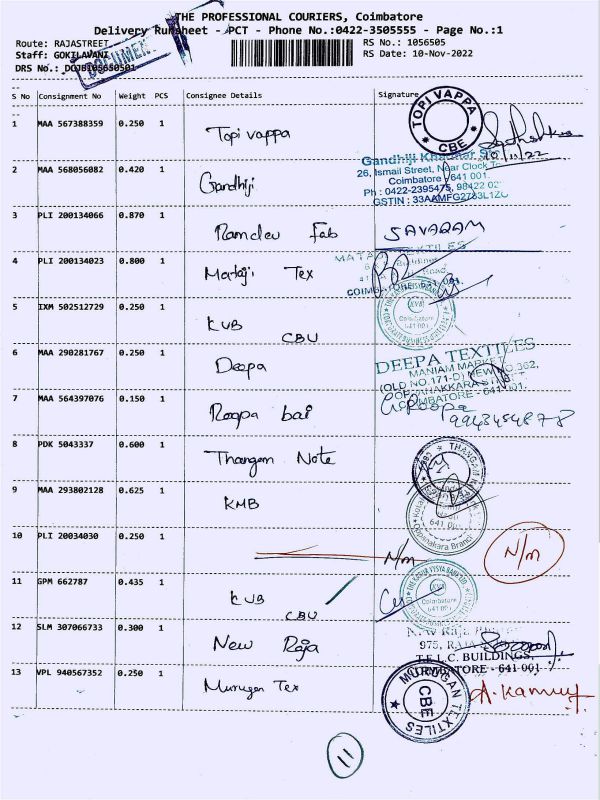 THE PROFESSIONAL COURIERS, Coimbatore
Delivery Runsheet - PCT - Phone No.:0422-3505555 - Page No.:1
Route: RAJASTREET
RS No.: 1056505
Staff: GOKILAVANI
RS Date: 10-Nov-2022
DRS No.: DCJBI05650501
DOCUMENT
S No Consignment No Weight PCS Consignee Details Signature
1 MAA 567388359 0.250 1 Topi vappa
TOPI VAPPA
CBE
10/11/22
2 MAA 568056082 0.420 1 Gandhiji
Gandhiji Khadhar
26, Ismail Street, Near Clock
Coimbatore 641 001.
Ph : 0422-2395475, 98422
GSTIN : 33AAMFG2763L1ZU
3 PLI 200134066 0.870 1 Ramdev Fab SAVARAM
4 PLI 200134023 0.800 1 Mataji Tex
5 IXM 502512729 0.250 1 KVB CBU
KVB
Coimbatore
641 001
6 MAA 290281767 0.250 1 Deepa
DEEPA TEXTILES
MANIAM MARKET
(OLD NO.171-D) NEW NO.362,
COIMBATORE - 641 001.
7 MAA 564397076 0.150 1 Roopa bai
Roopa
9943454878
8 PDK 5043337 0.600 1 Thangam Note
THANGAM
9 MAA 293802128 0.625 1 KMB
641 001
Oppanakara Branch
10 PLI 20034030 0.250 1 N/m
N/m
11 GPM 662787 0.435 1 KVB CBU
THE KARUR VYSYA BANK LTD.
KVB
Coimbatore
641 001
12 SLM 307066733 0.300 1 New Raja
975, RAJA
T.E.L.C. BUILDINGS,
COIMBATORE - 641 001
13 VPL 940567352 0.250 1 Murugan Tex
MURUGAN TEXTILES
CBE
11